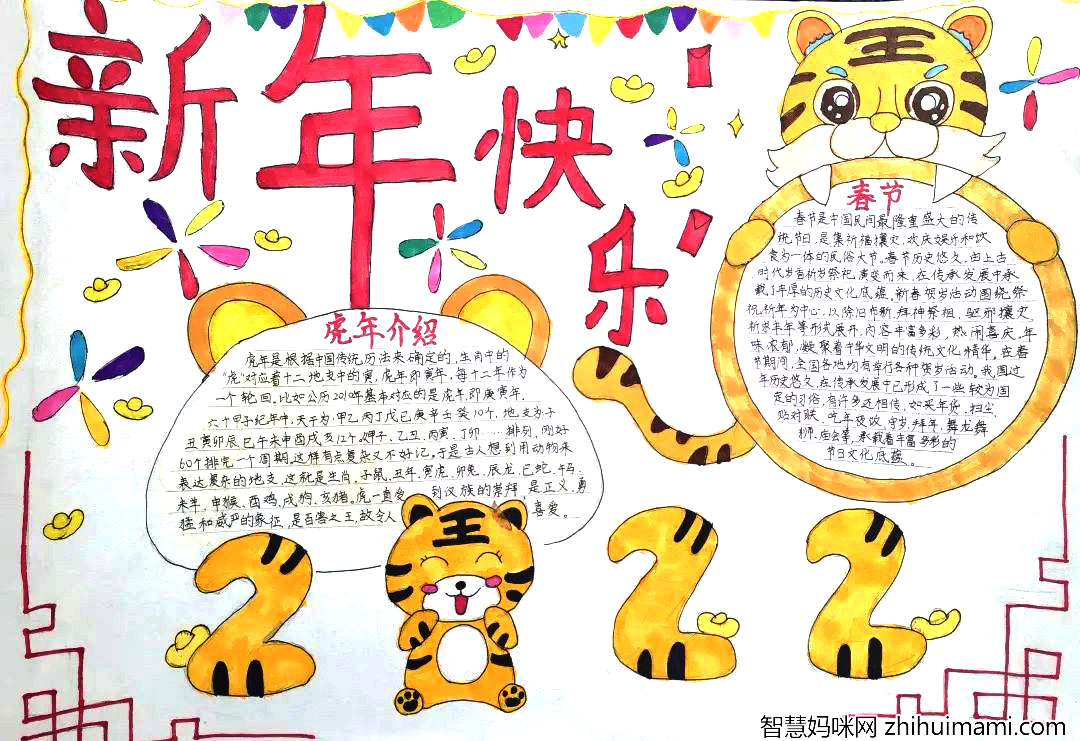 新年快乐
虎年介绍
虎年是根据中国传统历法来确定的,生肖中的
“虎”对应着十二地支中的寅,虎年即寅年,每十二年作为
一个轮回。比如公历2010年基本对应的是虎年,即庚寅年.
六十甲子纪年中,天干为甲乙丙丁戊己庚辛壬癸10个,地支为子
丑寅卯辰巳午未申酉戌亥12个。甲子、乙丑、丙寅、丁卯……排列,刚好
60个排完一个周期。这样有点复杂又不好记。于是古人想到用动物来
表达复杂的地支,这就是生肖。子鼠、丑牛、寅虎、卯兔、辰龙、巳蛇、午马、
未羊、申猴、酉鸡、戌狗、亥猪。虎一直受到汉族的崇拜,是正义、勇
猛和威严的象征,是百兽之王,故令人喜爱。
王
春节
春节是中国民间最隆重盛大的传
统节日,是集祈福攘灾、欢庆娱乐和饮
食为一体的民俗大节。春节历史悠久,由上古
时代岁首祈岁祭祀演变而来,在传承发展中承
载了丰厚的历史文化底蕴。新春贺岁活动围绕祭
祝祈年为中心,以除旧布新、拜神祭祖、驱邪攘灾、
祈求丰年等形式展开,内容丰富多彩,热闹喜庆,年
味浓郁,凝聚着中华文明的传统文化精华。在春
节期间,全国各地均有举行各种贺岁活动。我国过
年历史悠久,在传承发展中已形成了一些较为固
定的习俗,有许多还相传,如买年货、扫尘、
贴对联、吃年夜饭、守岁、拜年、舞龙舞
狮、庙会等,承载着丰富多彩的
节日文化底蕴。
王
2 22
智慧妈咪网 zhihuimami.com